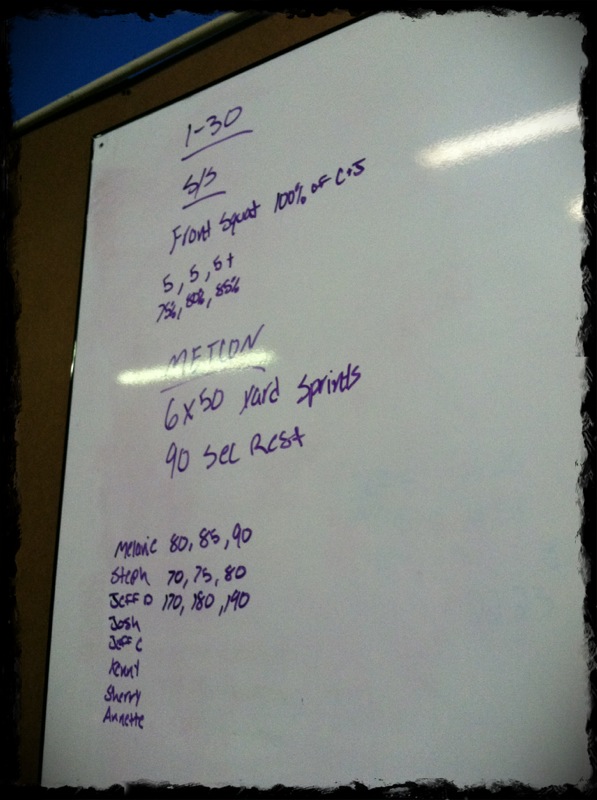 1-30
S/S
Front Squat 100% of C+J
5, 5, 5+
75%, 80%, 85%
METCON
6x50 yard Sprints
90 Sec Rest
Melanie 80, 85, 90
Steph 70, 75, 80
Jeff D 170, 180, 190
Josh
Jeff C
Kenny
Sherry
Annette